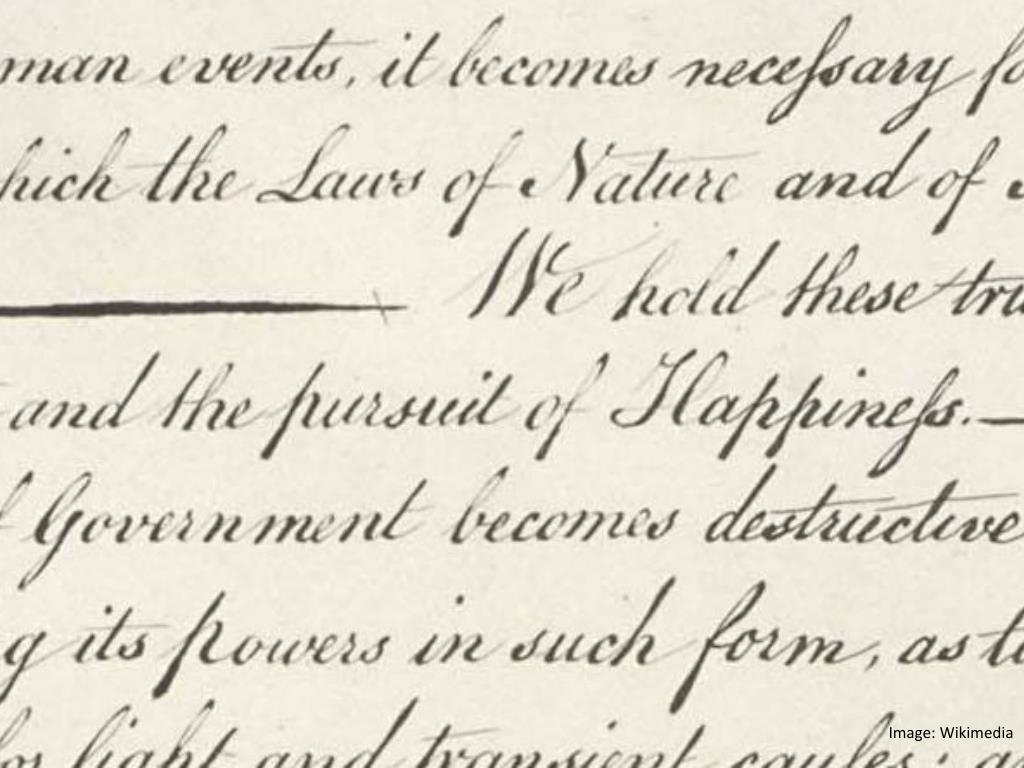 man events, it becomes neceſsary fo
hich the Laws of Nature and of
We hold these tru
and the pursuit of Happineſs.—
Government becomes destructive
g its powers in such form, as to
for light and transient cauſes; a
Image: Wikimedia